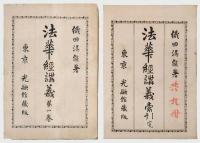 織田得能著
法華經講義 第一卷
東京 光融館藏版
織田得能著
法華經講義
東京 光融館藏版